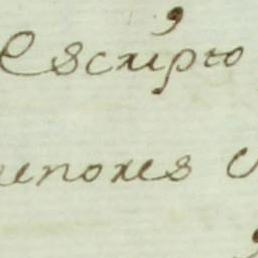 Escripto
enores